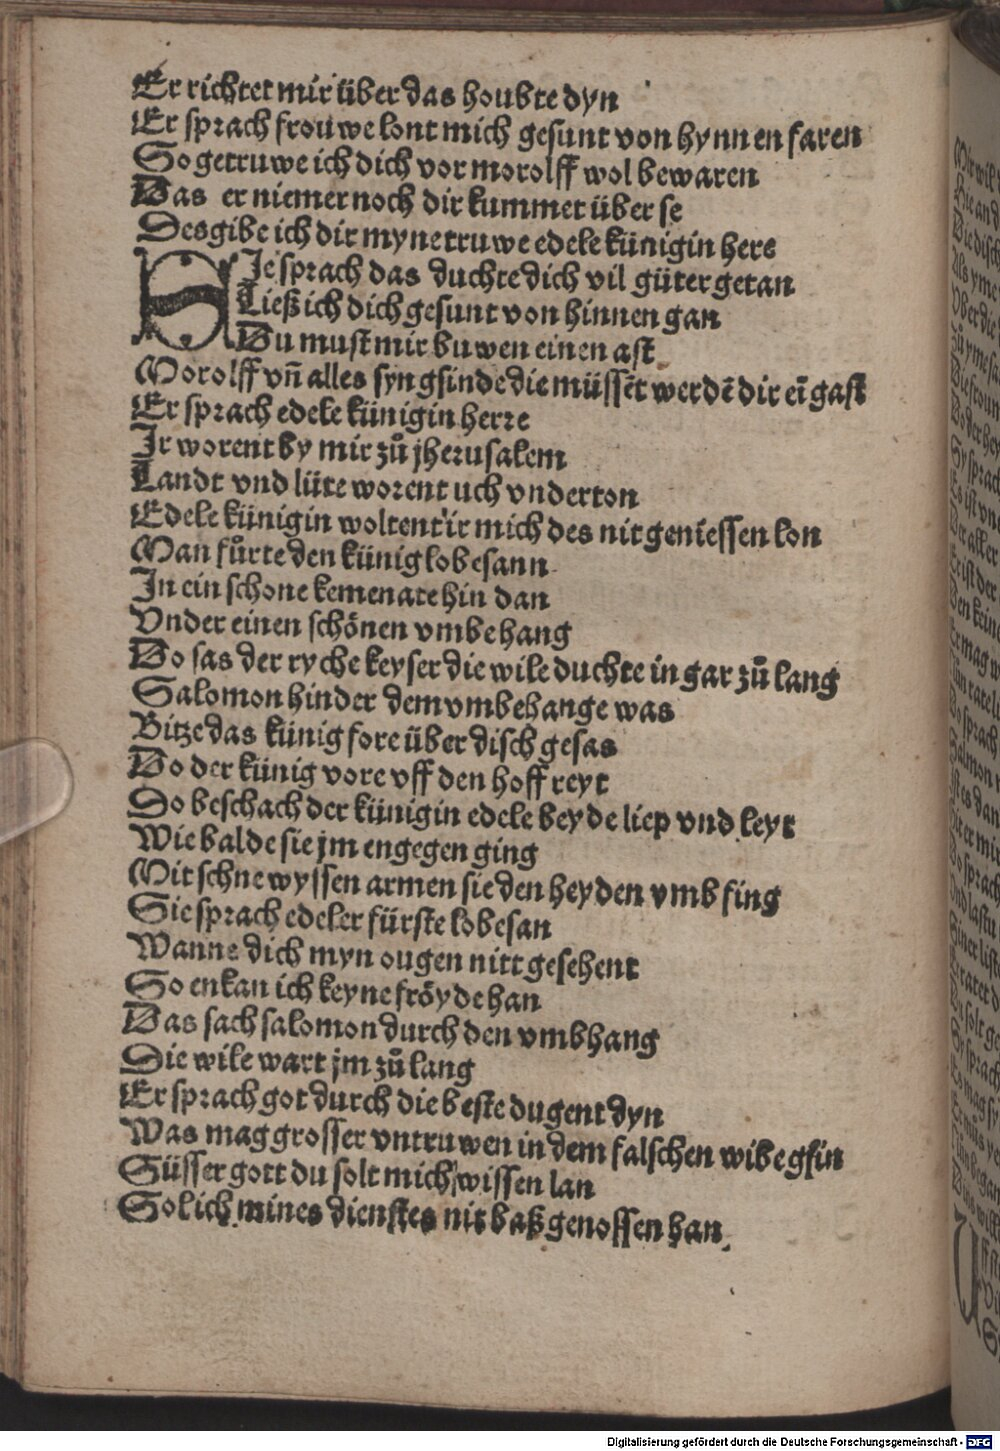 Er richtet mir über das houbte dyn
Er sprach frouwe lont mich gesunt von hynnen faren
So getruwe ich dich vor morolff wol bewaren
Das er niemer noch dir kummet über se
Des gibe ich dir myne truwe edele künigin here
SJe sprach das duchte dich vil güter getan
Ließ ich dich gesunt von hinnen gan
Du must mir buwen einen ast
Morolff vn̄ alles syn gsinde die müssēt werdē dir eī gast
Er sprach edele künigin herre
Jr worent by mir zů jherusalem
Landt vnd lüte worent uch vnderton
Edele künigin woltent ir mich des nit geniessen lon
Man fůrte den künig lobesann
Jn ein schone kemenate hin dan
Vnder einen schönen vmbehang
Do sas der ryche keyser die wile duchte in gar zů lang
Salomon hinder dem vmbehange was
Bitze das künig fore über disch gesas
Do der künig vore vff den hoff reyt
Do beschach der künigin edele beyde liep vnd leyt
Wie balde sie jm engegen ging
Mit schnewyssen armen sie den heyden vmb fing
Sie sprach edeler fürste lobesan
Wanne dich myn ougen nitt gesehent
So enkan ich keyne fröyde han
Das sach salomon durch den vmbhang
Die wile wart jm zů lang
Er sprach got durch die beste dugent dyn
Was mag grosser vntruwen in dem falschen wibe gsin
Süsser gott du solt mich wissen lan
Sol ich mines dienstes nit baß genossen han.
Digitalisierung gefördert durch die Deutsche Forschungsgemeinschaft - DFG